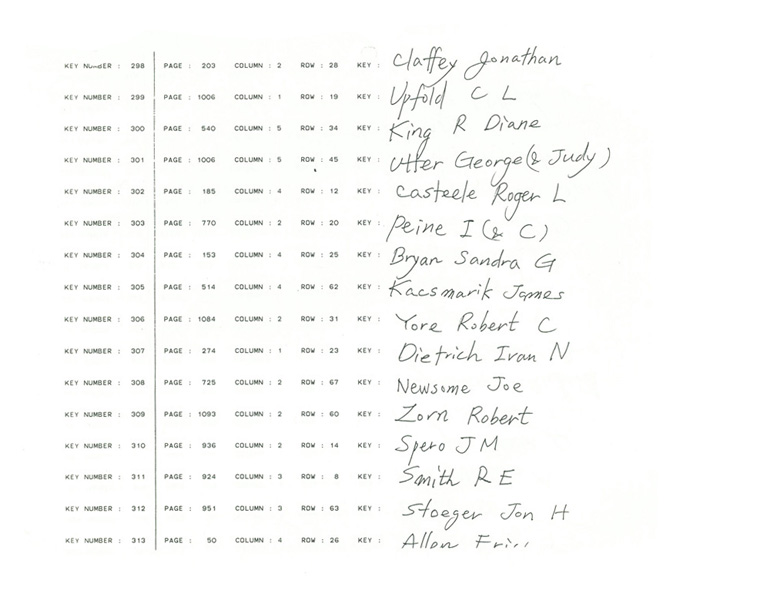 KEY NUMBER : 298 PAGE : 203 COLUMN : 2 ROW : 28 KEY : Claffey Jonathan
KEY NUMBER : 299 PAGE : 1006 COLUMN : 1 ROW : 19 KEY : Upfold C L
KEY NUMBER : 300 PAGE : 540 COLUMN : 5 ROW : 34 KEY : King R Diane
KEY NUMBER : 301 PAGE : 1006 COLUMN : 5 ROW : 45 KEY : Utter George (& Judy)
KEY NUMBER : 302 PAGE : 185 COLUMN : 4 ROW : 12 KEY : Casteele Roger L
KEY NUMBER : 303 PAGE : 770 COLUMN : 2 ROW : 20 KEY : Peine I (& C)
KEY NUMBER : 304 PAGE : 153 COLUMN : 4 ROW : 25 KEY : Bryan Sandra G
KEY NUMBER : 305 PAGE : 514 COLUMN : 4 ROW : 62 KEY : Kacsmarik James
KEY NUMBER : 306 PAGE : 1084 COLUMN : 2 ROW : 31 KEY : Yore Robert C
KEY NUMBER : 307 PAGE : 274 COLUMN : 1 ROW : 23 KEY : Dietrich Ivan N
KEY NUMBER : 308 PAGE : 725 COLUMN : 2 ROW : 67 KEY : Newsome Joe
KEY NUMBER : 309 PAGE : 1093 COLUMN : 2 ROW : 60 KEY : Zorn Robert
KEY NUMBER : 310 PAGE : 936 COLUMN : 2 ROW : 14 KEY : Spero J M
KEY NUMBER : 311 PAGE : 924 COLUMN : 3 ROW : 8 KEY : Smith R E
KEY NUMBER : 312 PAGE : 951 COLUMN : 3 ROW : 63 KEY : Stoeger Jon H
KEY NUMBER : 313 PAGE : 50 COLUMN : 4 ROW : 26 KEY : Allan